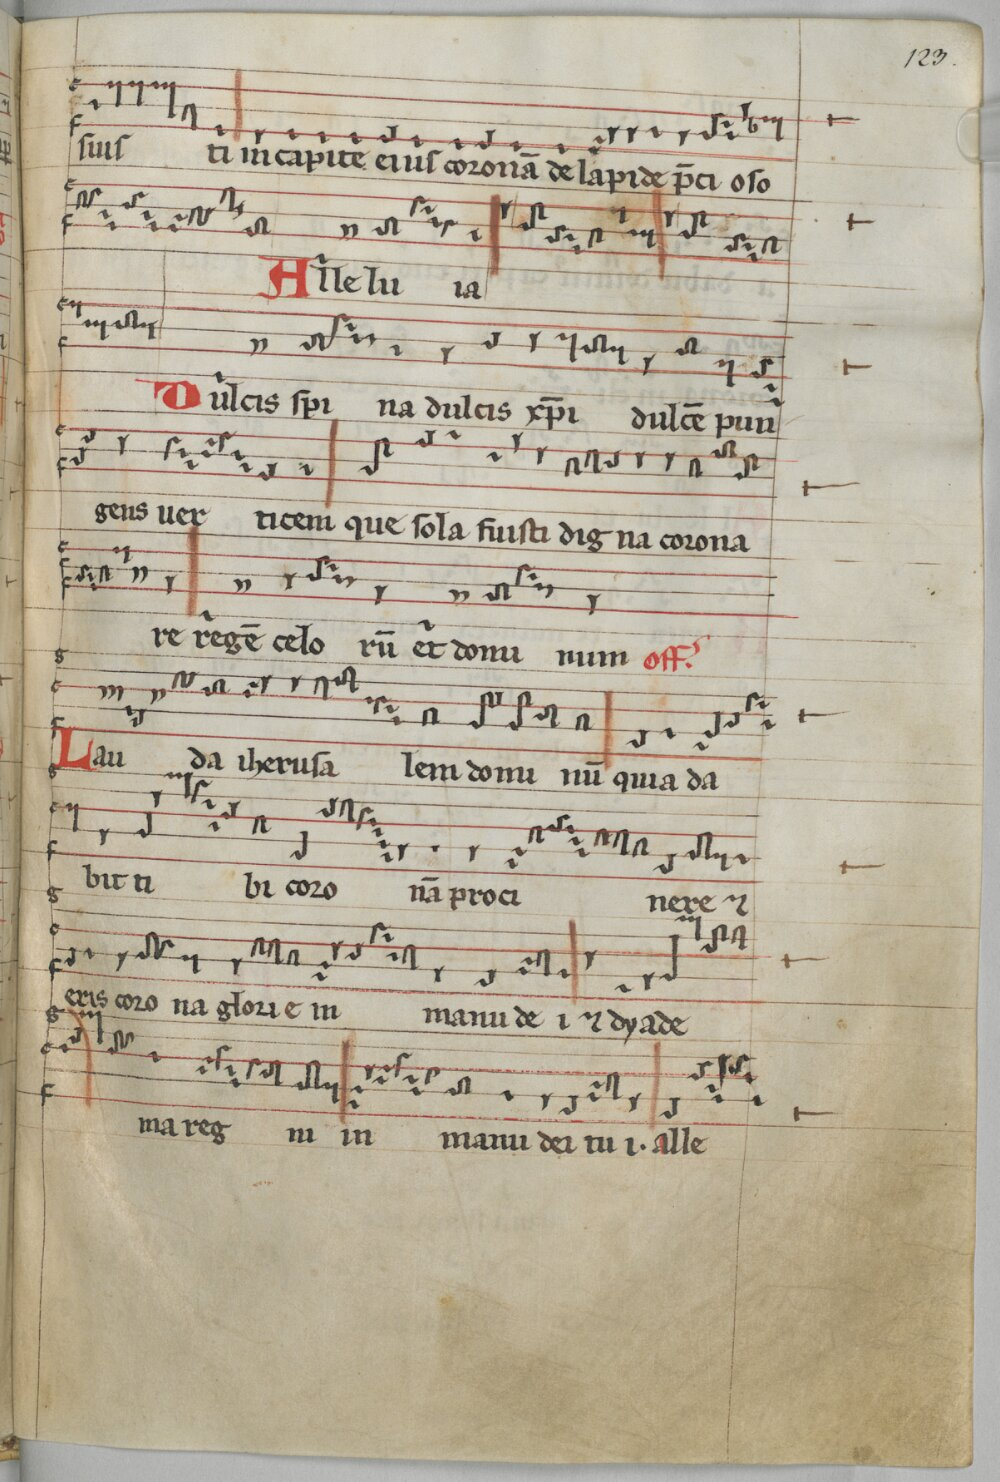 123.
suis ti in capite eius coronā de lapide p̄ci oso
Alle lu ia
Dulcis spi na dulcis xp̄i dulcē pun
gens uer ticem que sola fuisti dig na corona
re regē celo rū et domi num off.
Lau da iherusa lem domi nū quia da
bit ti bi coro nā proci nere ⁊
eris coro na glorie in manu de i ⁊ dyade
ma reg ni in manu dei tu i. alle